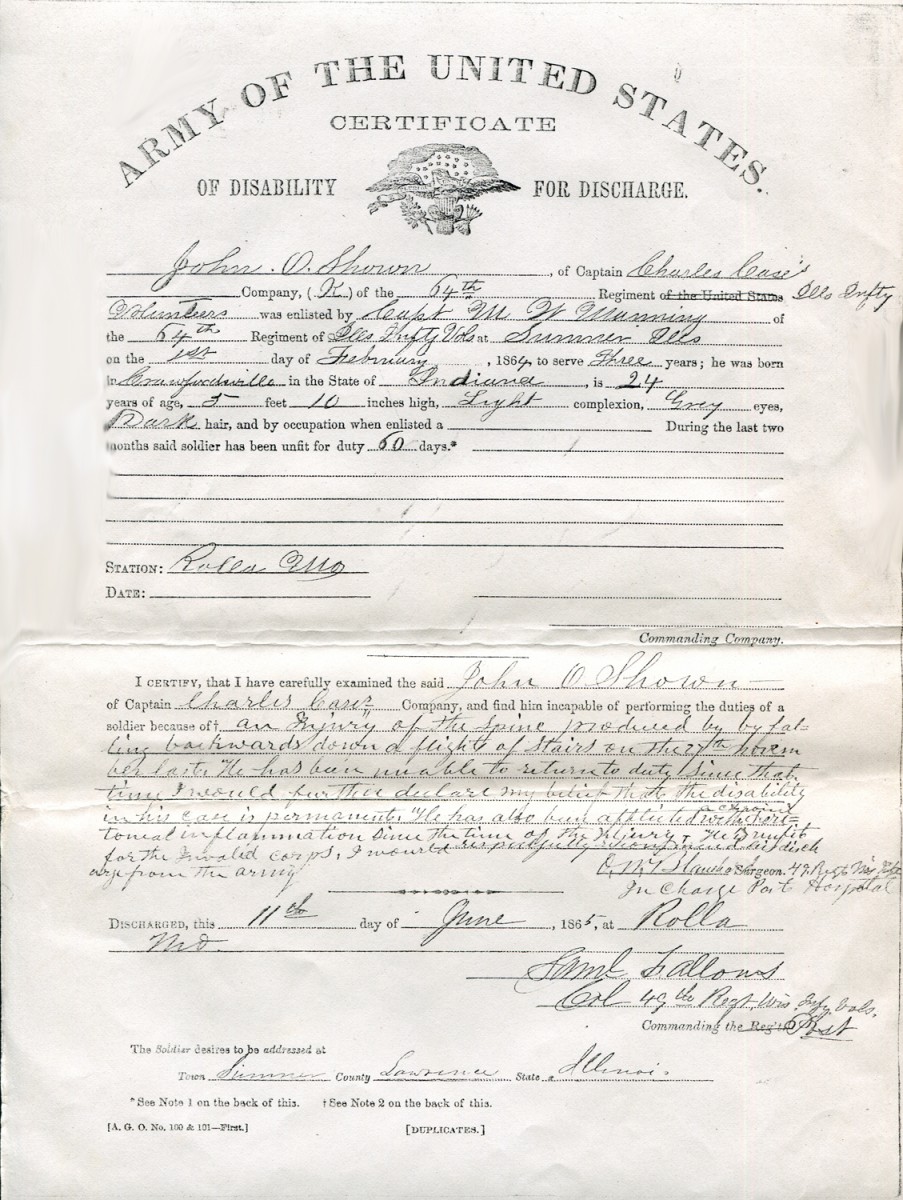 ARMY OF THE UNITED STATES.
CERTIFICATE
OF DISABILITY FOR DISCHARGE.
John. O. Shown, of Captain Charles Case's
Company, (K) of the 64th Regiment of the United States Ills Infty
Volunteers was enlisted by Capt M W Manning of
the 64th Regiment of Ills Infty Vols at Sumner Ills
on the 1st day of February, 1864, to serve Three years; he was born
in Crawfordsville in the State of Indiana, is 24
years of age, 5 feet 10 inches high, Light complexion, Grey eyes,
Dark hair, and by occupation when enlisted a During the last two
months said soldier has been unfit for duty 60 days.*
STATION: Rolla Mo
DATE:
Commanding Company.
I CERTIFY, that I have carefully examined the said John O Shown
of Captain Charles Case's Company, and find him incapable of performing the duties of a
soldier because of† an Injury of the Spine produced by by fal-
ling backwards down a flight of Stairs on the 27th novem
ber last. He has been unable to return to duty since that
time I would further declare my belief that the disability
in his case is permanent. He has also been afflicted with a chronic
inflammation since the time of the Injury & He is unfit
for the Invalid corps, I would respectfully recommend his disch
arge from the army
Surgeon. 49 Regt Wis
In Charge Post Hospital
DISCHARGED, this 11th day of June, 1865, at Rolla
Mo.
Saml Fallows
Col 49th Regt, Wis Infy Vols.
Commanding the Reg't Post
The Soldier desires to be addressed at
Town Sumner County Lawrence State Illinois.
*See Note 1 on the back of this. †See Note 2 on the back of this.
[A. G. O. No. 100 & 101—First.] [DUPLICATES.]